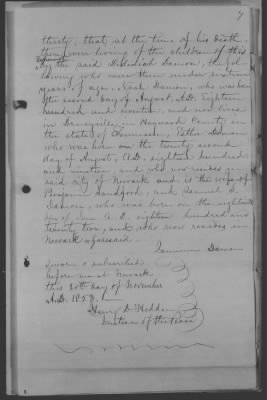 thirty, that at the time of his death,
there were living of the children of this
deponent by the said Jedediah Damon, the fol-
lowing who were then under sixteen
years of age, Noah Damon, who was born
the second day of August, A.D. eighteen
hundred and seventeen, and now lives
in Dancyville, Haywood County in
the state of Tennessee, Esther Damon
who was born on the twenty second
day of August, A.D. eighteen hundred
and nineteen, and who now resides in
said city of Newark and is the wife of
Benjamin Sandford, and Samuel S.
Damon, who was born on the eighteenth
day of June A.D. eighteen hundred and
twenty two, and who now resides in
Newark aforesaid.
Damon
Sworn & subscribed
before me at Newark
this 20th day of November
A.D. 1853.
Henry D.
Justice of the Peace